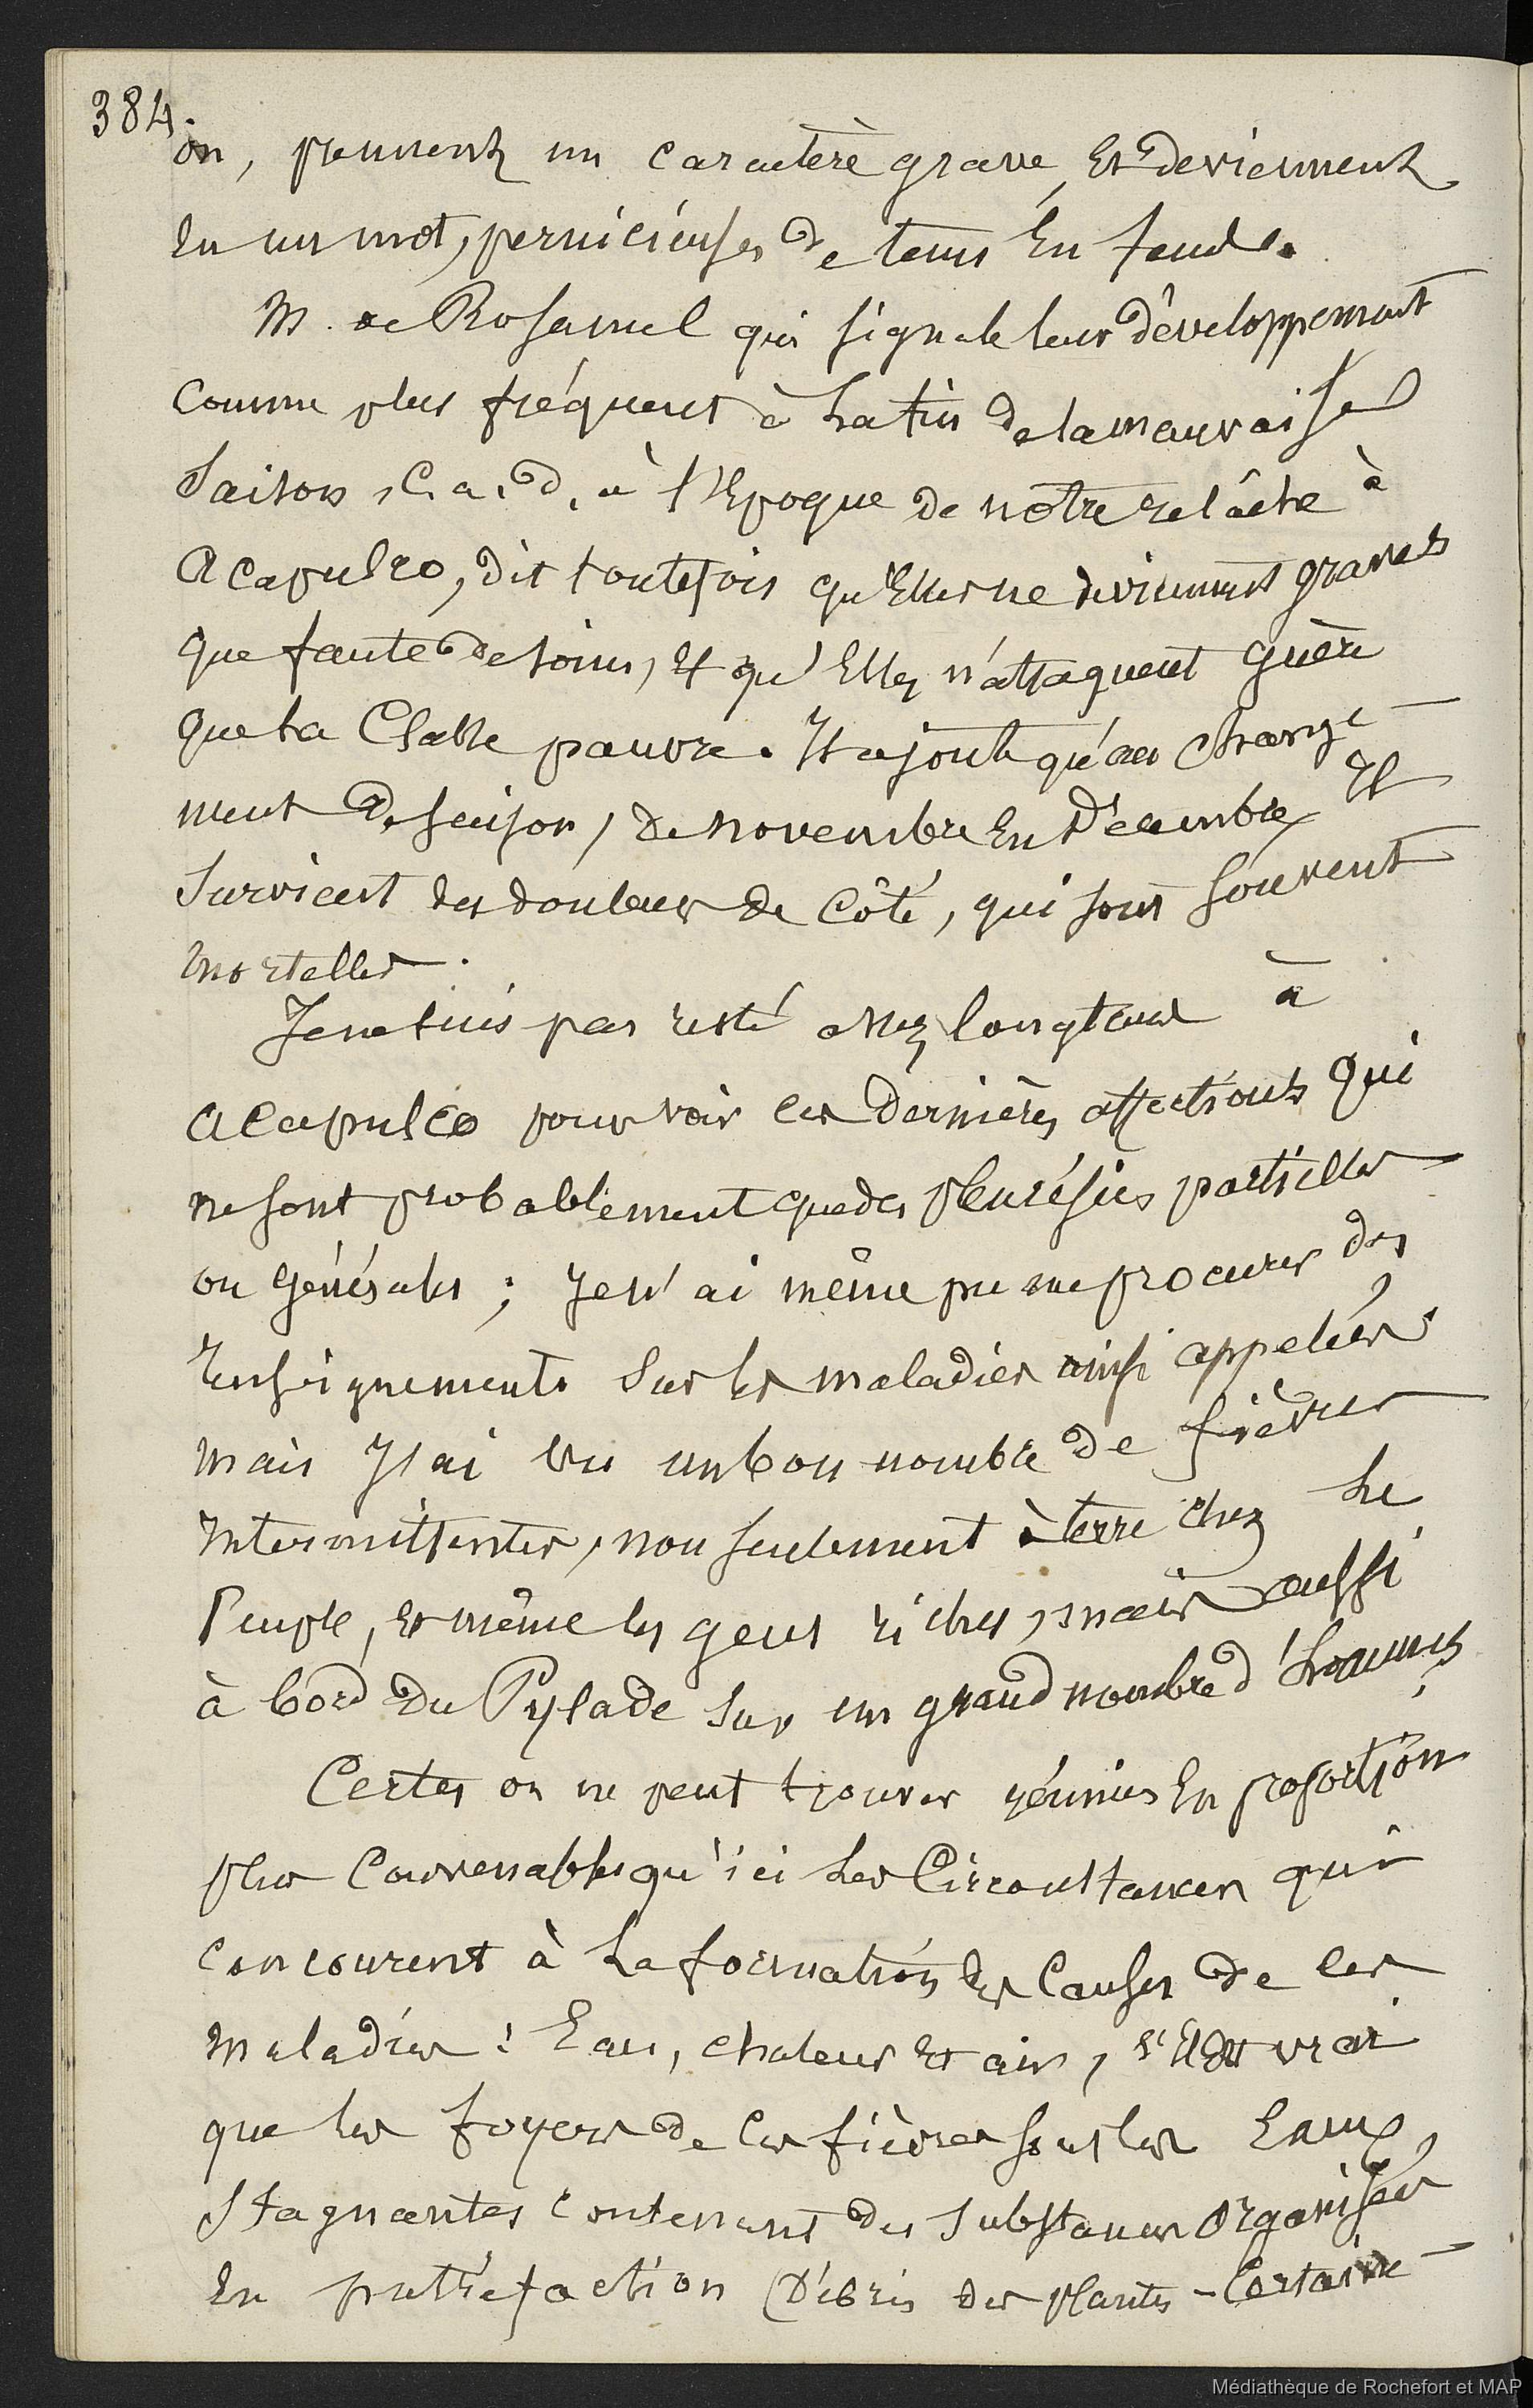 384.
on, prennent un caractère grave, et deviennent
en un mot, pernicieuses de tems en tems.
M. de Rosamel qui signale leur développement
comme plus fréquent à la fin de la mauvaise
saison, c. a. d. à l'Epoque de notre relâche à
Acapulco, dit toutefois qu'Elles ne deviennent graves
que faute de soins, et qu'Elles n'attaquent guère
que la Classe pauvre. Il ajoute qu'au change-
ment de saison, de novembre en Décembre, Il
survient des douleurs de Côté, qui sont souvent
mortelles.
Je ne suis pas resté assez longtems à
Acapulco pour voir ces dernières affections qui
ne sont probablement que des pleurésies partielles
ou générales ; Je n'ai même pu me procurer des
renseignements sur les maladies ainsi appelées,
mais J'ai vu un bon nombre de fièvres
Intermittentes, non seulement à terre chez le
Peuple, et même les gens riches, mais aussi
à bord du Pylade sur un grand nombre d'hommes.
Certes on ne peut trouver réunies en proportion
plus Convenables qu'ici les Circonstances qui
concourent à la formation des Causes de ces
maladies : Eau, chaleur et air, s'Il Est vrai
que les foyers de ces fièvres sont les Eaux
stagnantes contenant des substances organisées
en putréfaction (Débris des plantes - Certaine-
Médiathèque de Rochefort et MAP